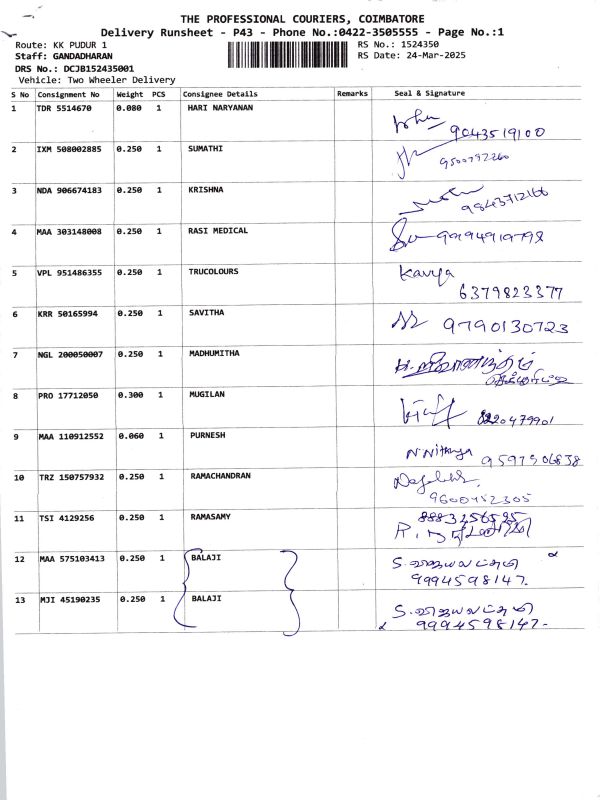 THE PROFESSIONAL COURIERS, COIMBATORE
Delivery Runsheet - P43 - Phone No.:0422-3505555 - Page No.:1
Route: KK PUDUR 1 RS No.: 1524350
Staff: GANDADHARAN RS Date: 24-Mar-2025
DRS No.: DCJB152435001
Vehicle: Two Wheeler Delivery
S No Consignment No Weight PCS Consignee Details Remarks Seal & Signature
1 TDR 5514670 0.080 1 HARI NARYANAN
9043519100
2 IXM 508002885 0.250 1 SUMATHI
9500792260
3 NDA 906674183 0.250 1 KRISHNA
9843712166
4 MAA 303148008 0.250 1 RASI MEDICAL
9194919798
5 VPL 951486355 0.250 1 TRUCOLOURS Kavya
6379823377
6 KRR 50165994 0.250 1 SAVITHA
9790130723
7 NGL 200050007 0.250 1 MADHUMITHA
8 PRO 17712050 0.300 1 MUGILAN
9 MAA 110912552 0.060 1 PURNESH
N Nithya 9597506838
10 TRZ 150757932 0.250 1 RAMACHANDRAN
9600452305
11 TSI 4129256 0.250 1 RAMASAMY
12 MAA 575103413 0.250 1 BALAJI S. விஜயலட்சுமி
9994598147.
13 MJI 45190235 0.250 1 BALAJI S. விஜயலட்சுமி
9994598147-